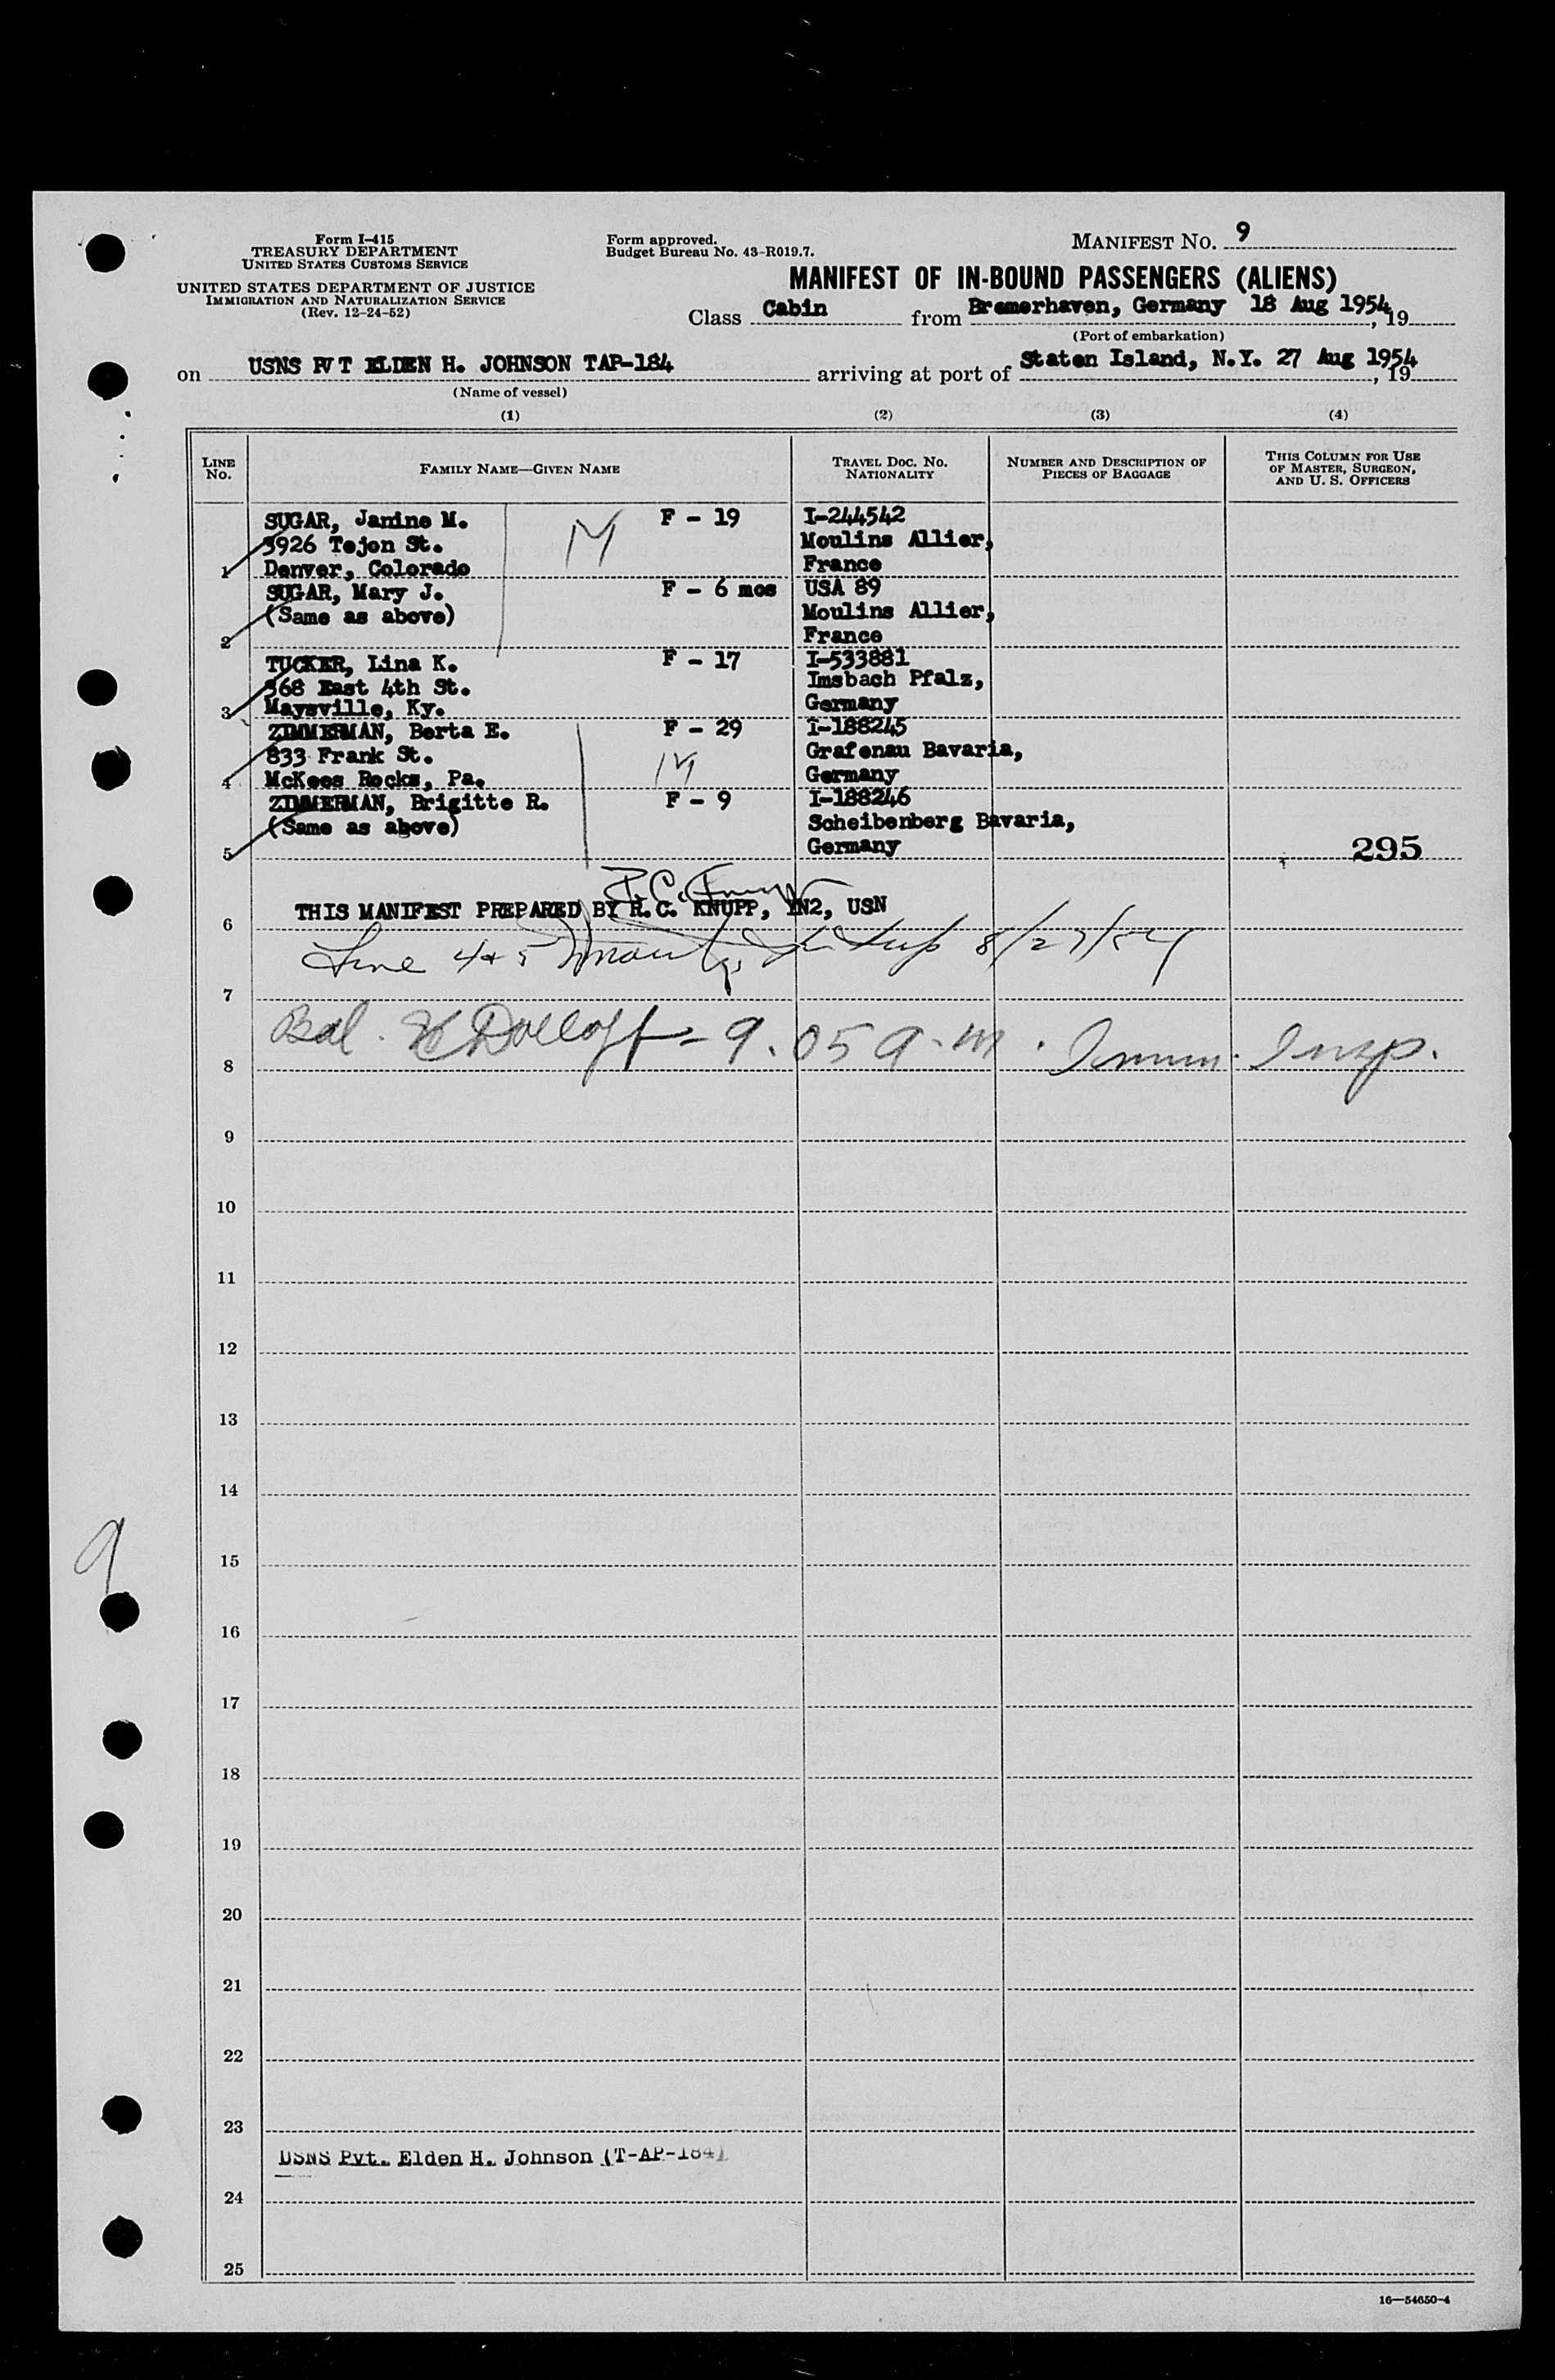 Form I-415
TREASURY DEPARTMENT
UNITED STATES CUSTOMS SERVICE
UNITED STATES DEPARTMENT OF JUSTICE
IMMIGRATION AND NATURALIZATION SERVICE
(Rev. 12-24-52)
Form approved.
Budget Bureau No. 43-R019.7.
MANIFEST NO. 9
MANIFEST OF IN-BOUND PASSENGERS (ALIENS)
Class Cabin from Bremerhaven, Germany 18 Aug 1954, 19
(Port of embarkation)
on USNS PVT ELDEN H. JOHNSON TAP-184 arriving at port of Staten Island, N.Y. 27 Aug 1954, 19
(Name of vessel)
(1) (2) (3) (4)
LINE NO.
FAMILY NAME—GIVEN NAME
TRAVEL DOC. NO. NATIONALITY
NUMBER AND DESCRIPTION OF PIECES OF BAGGAGE
THIS COLUMN FOR USE OF MASTER, SURGEON, AND U. S. OFFICERS
SUGAR, Janine M. F - 19 I-244542
3926 Tejon St. M Moulins Allier,
1 Denver, Colorado France
SUGAR, Mary J. F - 6 mos USA 89
(Same as above) Moulins Allier,
2 France
TUCKER, Lina K. F - 17 I-533881
368 East 4th St. Imsbach Pfalz,
3 Maysville, Ky. Germany
ZIMMERMAN, Berta E. F - 29 I-188245
833 Frank St. Grafenau Bavaria,
4 McKees Rocks, Pa. M Germany
ZIMMERMAN, Brigitte R. F - 9 I-188246
(Same as above) Scheibenberg Bavaria,
5 Germany 295
THIS MANIFEST PREPARED BY R.C. KNUPP, YN2, USN
6
Line 4+5 8/27/54
7
Bal. Dolloff - 9.05 a.m. Immn. Insp.
8
9
10
11
12
13
14
15
9
16
17
18
19
20
21
22
23
USNS Pvt. Elden H. Johnson (T-AP-184)
24
25
16—54650-4